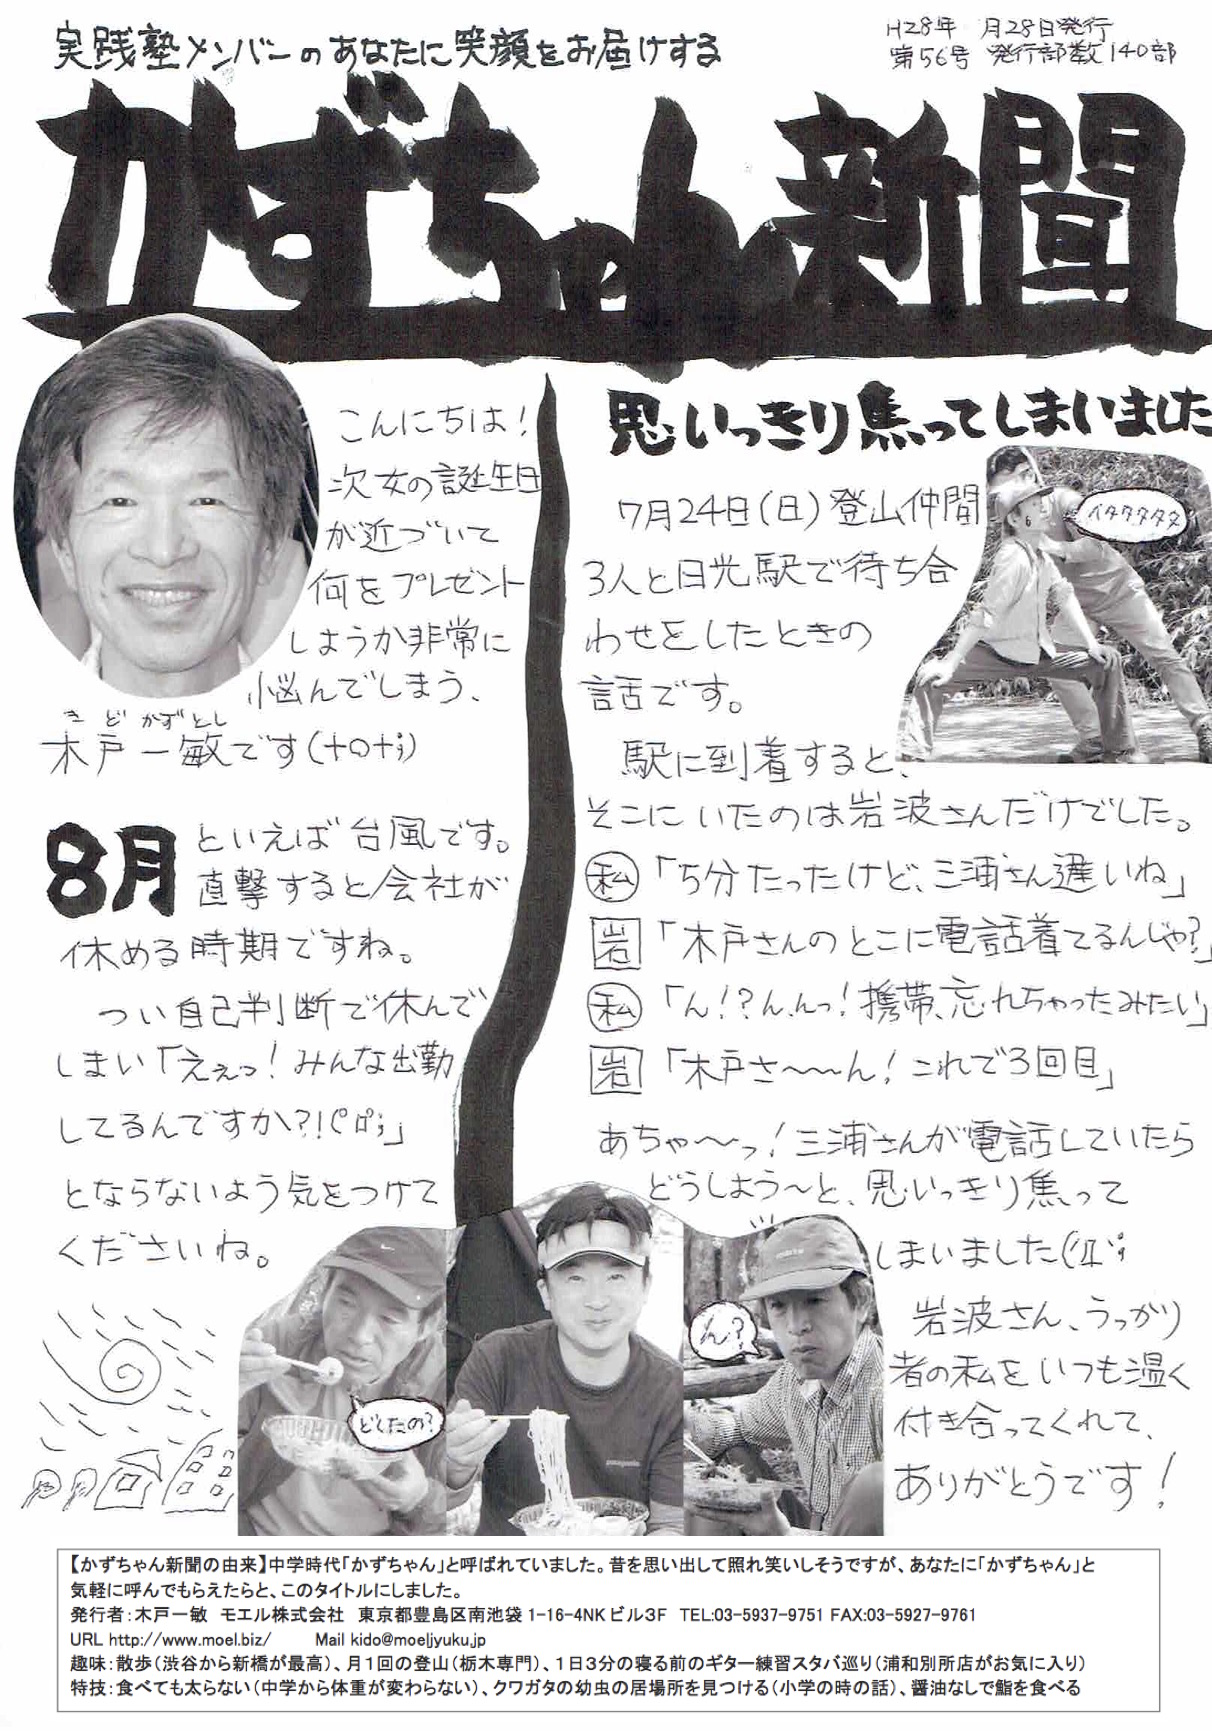 実践塾メンバーのあなたに笑顔をお届けする
H28年 月28日発行
第56号 発行部数140部
かずちゃん新聞
こんにちは!
次女の誕生日
が近づいて
何をプレゼント
しようか非常に
悩んでしまう、
きど かずとし
木戸一敏です(+o+;)
8月といえば台風です。
直撃すると会社が
休める時期ですね。
つい自己判断で休んで
しまい「えぇっ!みんな出勤
してるんですか?!
とならないよう気をつけて
くださいね。
思いっきり焦ってしまいました
7月24日(日)登山仲間
3人と日光駅で待ち合
わせをしたときの
話です。
イタタタタタ
駅に到着すると、
そこにいたのは岩波さんだけでした。
私「5分たったけど、三浦さん遅いね」
岩「木戸さんのとこに電話着てるんじゃ?」
私「ん!?ん、んっ!携帯、忘れちゃったみたい」
岩「木戸さ〜〜ん!これで3回目」
あちゃ〜っ!三浦さんが電話していたら
どうしよう〜と、思いっきり焦って
しまいました
岩波さん、うっかり
者の私をいつも温く
付き合ってくれて、
ありがとうです!
どしたの?
ん?
【かずちゃん新聞の由来】中学時代「かずちゃん」と呼ばれていました。昔を思い出して照れ笑いしそうですが、あなたに「かずちゃん」と
気軽に呼んでもらえたらと、このタイトルにしました。
発行者:木戸一敏 モエル株式会社 東京都豊島区南池袋 1-16-4NKビル3F TEL:03-5937-9751 FAX:03-5927-9761
URL http://www.moel.biz/ Mail kido@moeljyuku.jp
趣味:散歩(渋谷から新橋が最高)、月1回の登山(栃木専門)、1日3分の寝る前のギター練習スタバ巡り(浦和別所店がお気に入り)
特技:食べても太らない(中学から体重が変わらない)、クワガタの幼虫の居場所を見つける(小学の時の話)、醤油なしで鮨を食べる